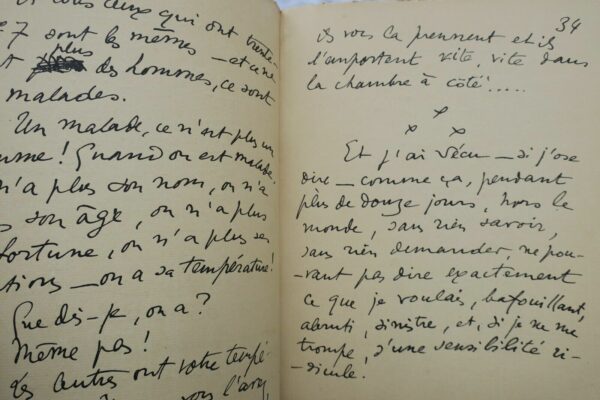 vous deux qui ont trente-
7 sont les mêmes — et ce ne
plus
des hommes, ce sont
malades.
Un malade, ce n'est plus un
! Quand on est malade,
n'a plus son nom, on n'a
son âge, on n'a plus
fortune, on n'a plus ses
tions — on a sa température!
Que dis-je, on a?
Même pas!
Les autres ont votre tempé-
vous l'avez
34
ils vous la prennent et ils
l'emportent vite, vite dans
la chambre à côté.....
x x x
Et j'ai vécu — si j'ose
dire — comme ça, pendant
plus de douze jours, hors le
monde, sans rien savoir,
sans rien demander, ne pou-
-vant pas dire exactement
ce que je voulais, bafouillant,
abruti, sinistre, et, si je ne me
trompe, d'une sensibilité ri-
-dicule.